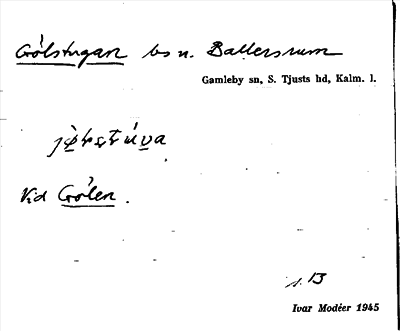 Gölstugan bs u. Ballersrum
Gamleby sn, S. Tjusts hd, Kalm. l.
Vid Gölen.
s. 13
Ivar Modéer 1945